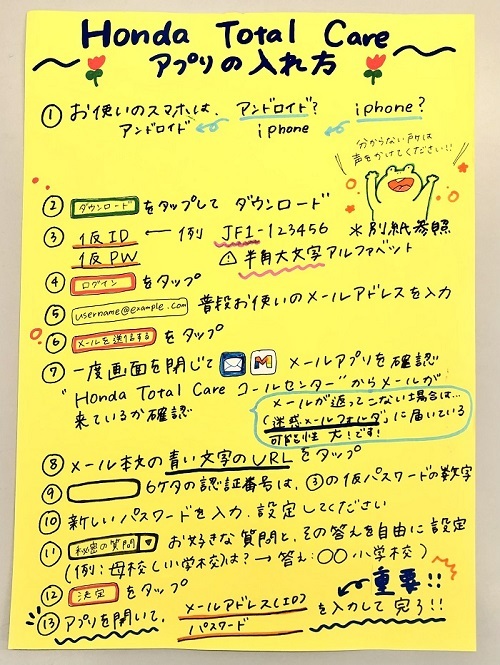 Honda Total Care
アプリの入れ方
① お使いのスマホは、アンドロイド？ iphone？
アンドロイド iphone
分からない所は
声をかけてください!!
② ダウンロード をタップして ダウンロード
③ 仮ID ← 例 JF1-123456 ＊別紙参照
仮PW ⚠半角大文字アルファベット
④ ログイン をタップ
⑤ username@example.com 普段お使いのメールアドレスを入力
⑥ メールを送信する をタップ
⑦ 一度画面を閉じて M メールアプリを確認
"Honda Total Care コールセンター"からメールが
来ているか確認
メールが返ってこない場合は…
「迷惑メールフォルダ」に届いている
可能性 大！です！
⑧ メール本文の青い文字のURLをタップ
⑨ 6ケタの認証番号は、③の仮パスワードの数字
⑩ 新しいパスワードを入力、設定してください
⑪ 秘密の質問 ▼ お好きな質問と、その答えを自由に設定
(例：母校(小学校)は？→答え：〇〇小学校)
⑫ 決定 をタップ
重要!!
⑬ アプリを開いて、メールアドレス(ID) を入力して完了!!
パスワード